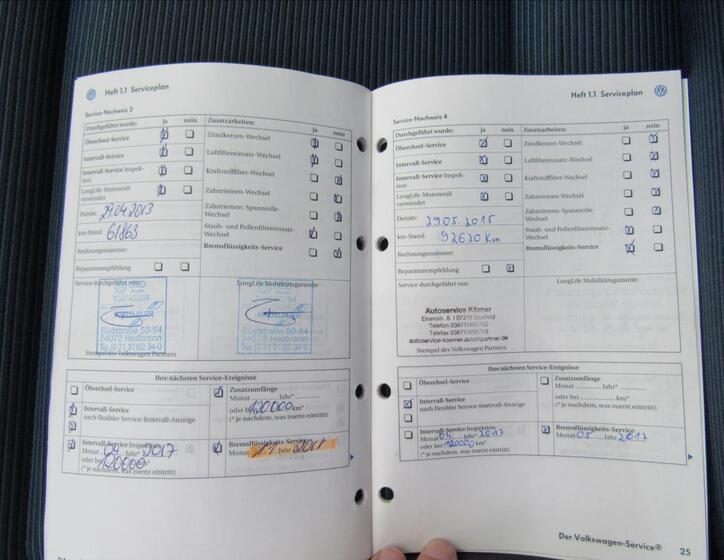 Heft 1.1 Serviceplan
Service-Nachweis 3
Durchgeführt wurde: ja nein
Ölwechsel-Service
Intervall-Service
Intervall-Service Inspek-
tion
LongLife-Motorenöl
verwendet
Datum: 29.04.2013
km-Stand: 61863
Rechnungsnummer:
Reparaturempfehlung
Zusatzarbeiten: ja nein
Zündkerzen-Wechsel
Luftfiltereinsatz-Wechsel
Kraftstofffilter-Wechsel
Zahnriemen-Wechsel
Zahnriemen: Spannrolle-
Wechsel
Staub- und Pollenfiltereinsatz-
Wechsel
Bremsflüssigkeits-Service
Service durchgeführt von:
Südstraße 50-54
74072 Heilbronn
Stempel des Volkswagen Partners
LongLife Mobilitätsgarantie:
Südstraße 50-54
74072 Heilbronn
Ihre nächsten Service-Ereignisse
Ölwechsel-Service
Intervall-Service
nach flexibler Service-Intervall-Anzeige
Intervall-Service Inspektion
Monat 04 Jahr* 2017
oder bei 120000 km*
(* je nachdem, was zuerst eintritt)
Zusatzumfänge
Monat Jahr*
oder bei 120000 km*
(* je nachdem, was zuerst eintritt)
Bremsflüssigkeits-Service
Monat Jahr
Heft 1.1 Serviceplan
Service-Nachweis 4
Durchgeführt wurde: ja nein
Ölwechsel-Service
Intervall-Service
Intervall-Service Inspek-
tion
LongLife-Motorenöl
verwendet
Datum: 29.05.2015
km-Stand: 92620 Km
Rechnungsnummer:
Reparaturempfehlung
Zusatzarbeiten: ja nein
Zündkerzen-Wechsel
Luftfiltereinsatz-Wechsel
Kraftstofffilter-Wechsel
Zahnriemen-Wechsel
Zahnriemen: Spannrolle-
Wechsel
Staub- und Pollenfiltereinsatz-
Wechsel
Bremsflüssigkeits-Service
Service durchgeführt von:
Autoservice Körner
Telefon
Telefax
Stempel des Volkswagen Partners
LongLife Mobilitätsgarantie:
Ihre nächsten Service-Ereignisse
Ölwechsel-Service
Intervall-Service
nach flexibler Service-Intervall-Anzeige
Intervall-Service Inspektion
Monat 04 Jahr* 2017
oder bei 120000 km*
(* je nachdem, was zuerst eintritt)
Zusatzumfänge
Monat Jahr*
oder bei km*
(* je nachdem, was zuerst eintritt)
Bremsflüssigkeits-Service
Monat 05 Jahr 2017
Der Volkswagen-Service®
25